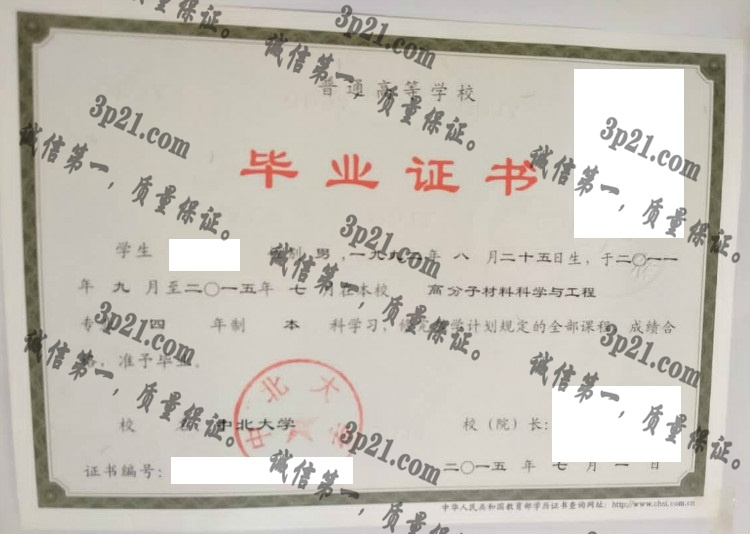 普通高等学校
毕业证书
学生 性别 男，一九九 年 八 月二十五日生，于二〇一一
年 九 月至二〇一五年 七 月在本校 高分子材料科学与工程
专 四 年制 本 科学习， 学计划规定的全部课程，成绩合
，准予毕业。
校 中北大学 校（院）长：
证书编号： 二〇一五 年 七 月 一 日
中北大学
中华人民共和国教育部学历证书查询网址：http://www.chsi.com.cn
3p21.com
诚信第一，质量保证。
3p21.com
诚信第一，质量保证。
3p21.com
诚信第一，质量保证。
3p21.com
诚信第一，质量保证。
3p21.com
诚信第一，质量保证。
3p21.com
诚信第一，质量保证。
3p21.com
诚信第一，质量保证。
诚信第一，质量保证。